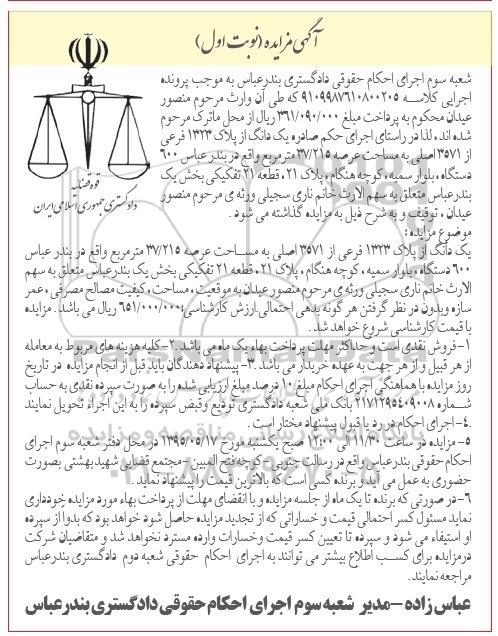 آگهی مزایده (نوبت اول)
شعبه سوم اجرای احکام حقوقی دادگستری بندرعباس به موجب پرونده
اجرایی کلاسه ۹۱۰۹۹۸۷۶۱۰۸۰۰۲۰۵ که طی آن وارث مرحوم منصور
عیدان محکوم به پرداخت مبلغ ۳۶۱/۰۹۰/۰۰۰ ریال از محل ماترک مرحوم
شده اند ، لذا در راستای اجرای حکم صادره یک دانگ از پلاک ۱۳۲۳ فرعی
از ۳۵۷۱ اصلی به مساحت عرصه ۳۷/۲۱۵ مترمربع واقع در بندر عباس ۶۰۰
دستگاه ، بلوار سمیه ، کوچه هنگام ، پلاک ۲۱ ، قطعه ۲۱ تفکیکی بخش یک
بندرعباس متعلق به سهم الارث خانم ناری سجیلی ورثه ی مرحوم منصور
عیدان ، توقیف و به شرح ذیل به مزایده گذاشته می شود .
قوه قضائیه
دادگستری جمهوری اسلامی ایران
موضوع مزایده :
یک دانگ از پلاک ۱۳۲۳ فرعی از ۳۵۷۱ اصلی به مساحت عرصه ۳۷/۲۱۵ مترمربع واقع در بندر عباس
۶۰۰ دستگاه ، بلوار سمیه ، کوچه هنگام ، پلاک ۲۱ ، قطعه ۲۱ تفکیکی بخش یک بندرعباس متعلق به سهم
الارث خانم ناری سجیلی ورثه ی مرحوم منصور عیدان به موقعیت ، مساحت ، کیفیت مصالح مصرفی ، عمر
سازه وبدون در نظر گرفتن هر گونه بدهی احتمالی.ارزش کارشناسی:۶۵۱/۰۰۰/۰۰۰ ریال می باشد . مزایده
با قیمت کارشناسی شروع خواهد شد .
۱- فروش نقدی است و حداکثر مهلت پرداخت بهاء یک ماه می باشد .۲-کلیه هزینه های مربوط به معامله
از هر قبیل و از هر جهت به عهده خریدار می باشد .۳- پیشنهاد دهندگان باید قبل از انجام مزایده در تاریخ
روز مزایده با هماهنگی اجرای احکام مبلغ ۱۰ درصد مبلغ ارزیابی شده را به صورت سپرده نقدی به حساب
شماره ۲۱۷۱۲۹۵۴۰۹۰۰۸ بانک ملی شعبه دادگستری تودیع وقبض سپرده را به این اجراء تحویل نمایند
.۴-اجرای احکام در رد یا قبول پیشنهاد مختار است .
۵- مزایده در ساعت ۱۱/۳۰ الی ۱۲:۰۰ صبح یکشنبه مورخ ۱۳۹۵/۰۵/۱۷ در محل دفتر شعبه سوم اجرای
احکام حقوقی بندرعباس واقع در رسالت جنوبی - کوچه فتح المبین - مجتمع قضایی شهید بهشتی بصورت
حضوری به عمل می آید و برنده کسی است که بالاترین قیمت را پیشنهاد نماید .
۶- در صورتی که برنده تا یک ماه از جلسه مزایده و با انقضای مهلت از پرداخت بهاء مورد مزایده خودداری
نماید مسئول کسر احتمالی قیمت و خساراتی که از تجدید مزایده حاصل شود خواهد بود که بدوا از سپرده
او استیفاء می شود و سپرده تا تعیین کسر قیمت وخسارات وارده مسترد نخواهد شد و متقاضیان شرکت
درمزایده برای کسب اطلاع بیشتر می توانند به اجرای احکام حقوقی شعبه دوم دادگستری بندرعباس
مراجعه نمایند.
عباس زاده – مدیر شعبه سوم اجرای احکام حقوقی دادگستری بندرعباس